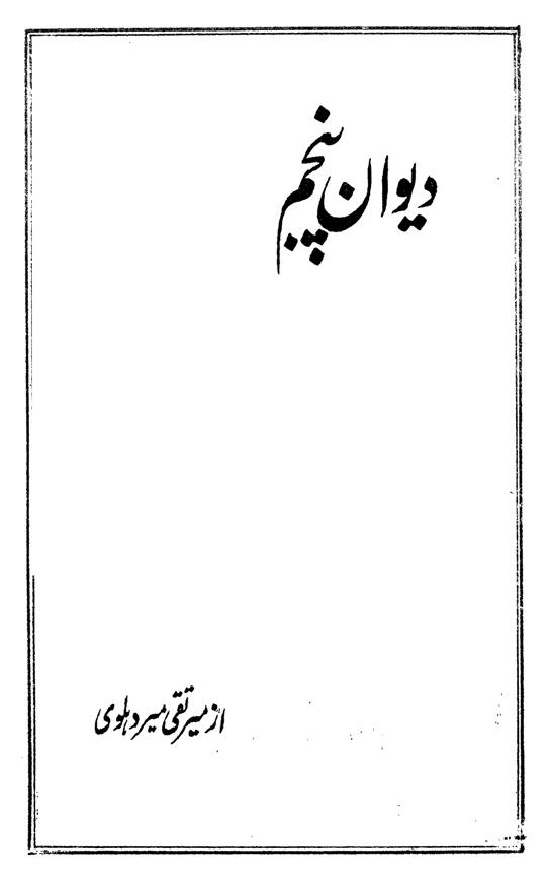 دیوان پنجم
از میر تقی میر دہلوی